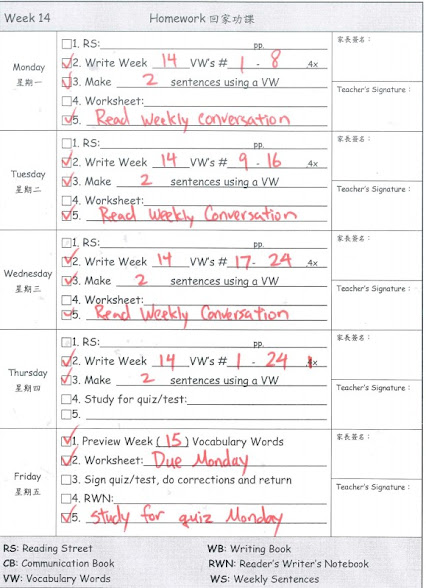 Week 14 Homework 回家功課
Monday
星期一
☐1. RS: pp.
☑2. Write Week 14 VW's # 1 - 8 ,4x
☑3. Make 2 sentences using a VW
☐4. Worksheet:
☑5. Read Weekly Conversation
家長簽名:
Teacher's Signature:
Tuesday
星期二
☐1. RS: pp.
☑2. Write Week 14 VW's # 9 - 16 ,4x
☑3. Make 2 sentences using a VW
☐4. Worksheet:
☑5. Read Weekly Conversation
家長簽名:
Teacher's Signature:
Wednesday
星期三
☐1. RS: pp.
☑2. Write Week 14 VW's # 17- 24 ,4x
☑3. Make 2 sentences using a VW
☐4. Worksheet:
☑5. Read Weekly Conversation
家長簽名:
Teacher's Signature:
Thursday
星期四
☐1. RS: pp.
☑2. Write Week 14 VW's # 1 - 24 x
☑3. Make 2 sentences using a VW
☐4. Study for quiz/test:
☐5.
家長簽名:
Teacher's Signature:
Friday
星期五
☑1. Preview Week (15) Vocabulary Words
☑2. Worksheet: Due Monday
☐3. Sign quiz/test, do corrections and return
☐4. RWN:
☑5. Study for quiz Monday
家長簽名:
Teacher's Signature:
RS: Reading Street WB: Writing Book
CB: Communication Book RWN: Reader's Writer's Notebook
VW: Vocabulary Words WS: Weekly Sentences